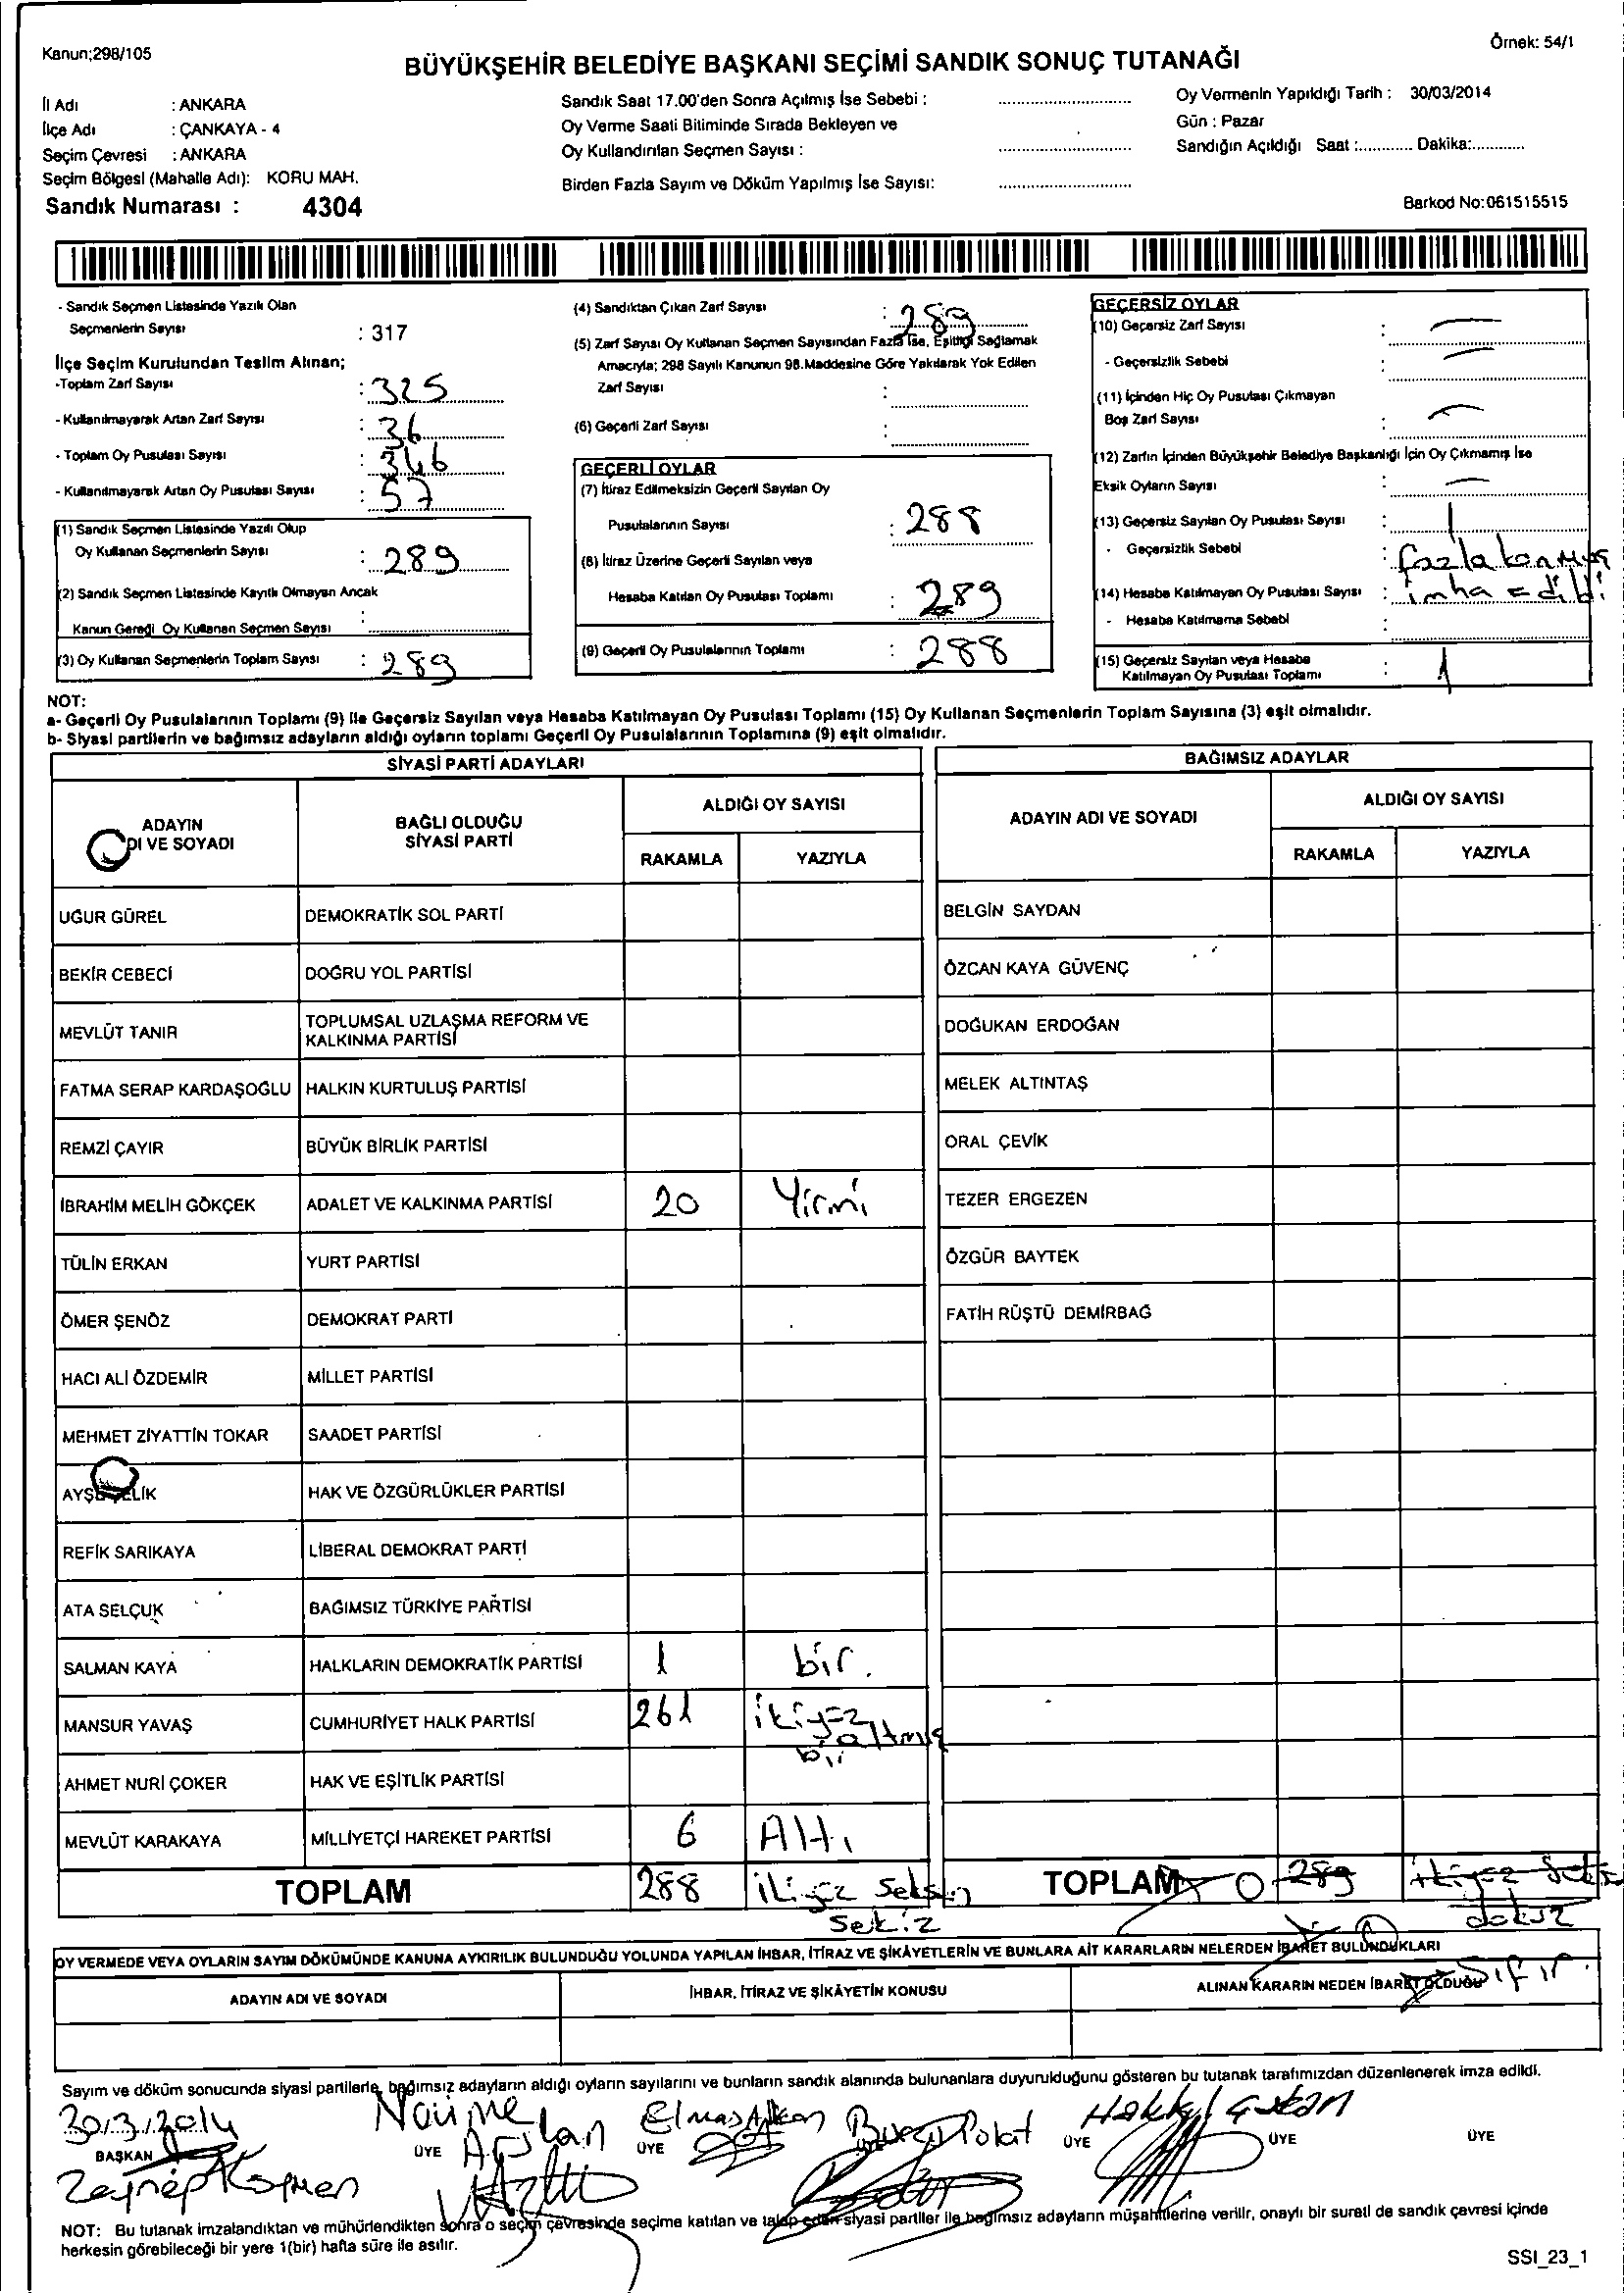 Kanun;298/105
Örnek: 54/1
BÜYÜKŞEHİR BELEDİYE BAŞKANI SEÇİMİ SANDIK SONUÇ TUTANAĞI
İl Adı : ANKARA
İlçe Adı : ÇANKAYA - 4
Seçim Çevresi : ANKARA
Seçim Bölgesi (Mahalle Adı): KORU MAH.
Sandık Numarası : 4304
Sandık Saat 17.00'den Sonra Açılmış İse Sebebi :
Oy Verme Saati Bitiminde Sırada Bekleyen ve
Oy Kullandırılan Seçmen Sayısı :
Birden Fazla Sayım ve Döküm Yapılmış İse Sayısı:
Oy Vermenin Yapıldığı Tarih : 30/03/2014
Gün : Pazar
Sandığın Açıldığı Saat :............ Dakika:............
Barkod No:061515515
- Sandık Seçmen Listesinde Yazılı Olan
Seçmenlerin Sayısı : 317
İlçe Seçim Kurulundan Teslim Alınan;
-Toplam Zarf Sayısı : 325
- Kullanılmayarak Artan Zarf Sayısı : 36
- Toplam Oy Pusulası Sayısı : 346
- Kullanılmayarak Artan Oy Pusulası Sayısı : 57
(1) Sandık Seçmen Listesinde Yazılı Olup
Oy Kullanan Seçmenlerin Sayısı : 289
(2) Sandık Seçmen Listesinde Kayıtlı Olmayan Ancak
Kanun Gereği Oy Kullanan Seçmen Sayısı :
(3) Oy Kullanan Seçmenlerin Toplam Sayısı : 289
(4) Sandıktan Çıkan Zarf Sayısı : 289
(5) Zarf Sayısı Oy Kullanan Seçmen Sayısından Fazla İse, Eşitliği Sağlamak
Amacıyla; 298 Sayılı Kanunun 98.Maddesine Göre Yakılarak Yok Edilen
Zarf Sayısı :
(6) Geçerli Zarf Sayısı :
GEÇERLİ OYLAR
(7) İtiraz Edilmeksizin Geçerli Sayılan Oy
Pusulalarının Sayısı : 288
(8) İtiraz Üzerine Geçerli Sayılan veya
Hesaba Katılan Oy Pusulası Toplamı : 289
(9) Geçerli Oy Pusulalarının Toplamı : 288
GEÇERSİZ OYLAR
(10) Geçersiz Zarf Sayısı : —
- Geçersizlik Sebebi : —
(11) İçinden Hiç Oy Pusulası Çıkmayan
Boş Zarf Sayısı : —
(12) Zarfın İçinden Büyükşehir Belediye Başkanlığı İçin Oy Çıkmamış İse
Eksik Oyların Sayısı : —
(13) Geçersiz Sayılan Oy Pusulası Sayısı : 1
- Geçersizlik Sebebi : fazla konmuş
(14) Hesaba Katılmayan Oy Pusulası Sayısı : imha edildi
- Hesaba Katılmama Sebebi :
(15) Geçersiz Sayılan veya Hesaba
Katılmayan Oy Pusulası Toplamı : 1
NOT:
a- Geçerli Oy Pusulalarının Toplamı (9) İle Geçersiz Sayılan veya Hesaba Katılmayan Oy Pusulası Toplamı (15) Oy Kullanan Seçmenlerin Toplam Sayısına (3) eşit olmalıdır.
b- Siyasi partilerin ve bağımsız adayların aldığı oyların toplamı Geçerli Oy Pusulalarının Toplamına (9) eşit olmalıdır.
SİYASİ PARTİ ADAYLARI
BAĞIMSIZ ADAYLAR
ADAYIN
DI VE SOYADI
BAĞLI OLDUĞU
SİYASİ PARTİ
ALDIĞI OY SAYISI
RAKAMLA YAZIYLA
ADAYIN ADI VE SOYADI
ALDIĞI OY SAYISI
RAKAMLA YAZIYLA
UĞUR GÜREL DEMOKRATİK SOL PARTİ BELGİN SAYDAN
BEKİR CEBECİ DOĞRU YOL PARTİSİ ÖZCAN KAYA GÜVENÇ
MEVLÜT TANIR TOPLUMSAL UZLAŞMA REFORM VE
KALKINMA PARTİSİ DOĞUKAN ERDOĞAN
FATMA SERAP KARDAŞOĞLU HALKIN KURTULUŞ PARTİSİ MELEK ALTINTAŞ
REMZİ ÇAYIR BÜYÜK BİRLİK PARTİSİ ORAL ÇEVİK
İBRAHİM MELİH GÖKÇEK ADALET VE KALKINMA PARTİSİ 20 Yirmi TEZER ERGEZEN
TÜLİN ERKAN YURT PARTİSİ ÖZGÜR BAYTEK
ÖMER ŞENÖZ DEMOKRAT PARTİ FATİH RÜŞTÜ DEMİRBAĞ
HACI ALİ ÖZDEMİR MİLLET PARTİSİ
MEHMET ZİYATTİN TOKAR SAADET PARTİSİ
AYŞE ÇELİK HAK VE ÖZGÜRLÜKLER PARTİSİ
REFİK SARIKAYA LİBERAL DEMOKRAT PARTİ
ATA SELÇUK BAĞIMSIZ TÜRKİYE PARTİSİ
SALMAN KAYA HALKLARIN DEMOKRATİK PARTİSİ 1 bir.
MANSUR YAVAŞ CUMHURİYET HALK PARTİSİ 261 ikiyüz
altmış
bir
AHMET NURİ ÇOKER HAK VE EŞİTLİK PARTİSİ
MEVLÜT KARAKAYA MİLLİYETÇİ HAREKET PARTİSİ 6 Altı
TOPLAM 288 ikiyüz seksen
sekiz
TOPLAM 0 289 ikiyüz seksen
dokuz
Sıfır.
OY VERMEDE VEYA OYLARIN SAYIM DÖKÜMÜNDE KANUNA AYKIRILIK BULUNDUĞU YOLUNDA YAPILAN İHBAR, İTİRAZ VE ŞİKÂYETLERİN VE BUNLARA AİT KARARLARIN NELERDEN İBARET BULUNDUKLARI
ADAYIN ADI VE SOYADI İHBAR, İTİRAZ VE ŞİKÂYETİN KONUSU ALINAN KARARIN NEDEN İBARET OLDUĞU
Sayım ve döküm sonucunda siyasi partilerle, bağımsız adayların aldığı oyların sayılarını ve bunların sandık alanında bulunanlara duyurulduğunu gösteren bu tutanak tarafımızdan düzenlenerek imza edildi.
30/3/2014 Naime Arslan Elmas Burçu Polat Hakkı
BAŞKAN ÜYE ÜYE ÜYE ÜYE ÜYE
Zeynep
NOT: Bu tutanak imzalandıktan ve mühürlendikten sonra o seçim çevresinde seçime katılan ve talep eden siyasi partiler ile bağımsız adayların müşahitlerine verilir, onaylı bir sureti de sandık çevresi içinde
herkesin görebileceği bir yere 1(bir) hafta süre ile asılır.
SSI_23_1